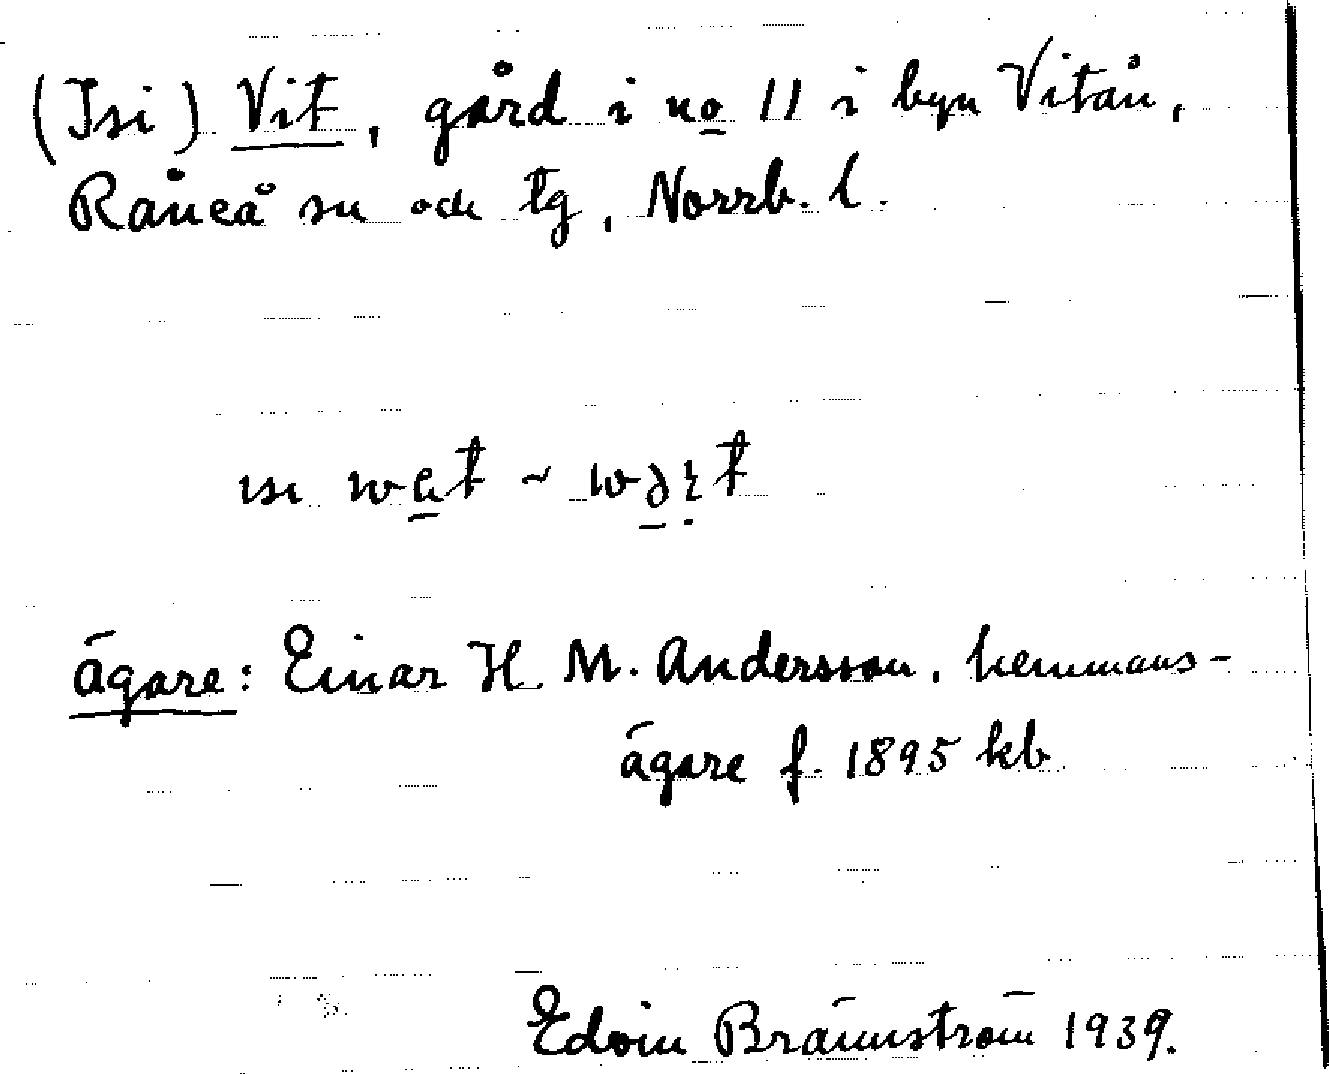 (Isi) Vit, gård i no 11 i byn Vitån,
Råneå sn och tg, Norrb. l.
ägare: Einar H M. Andersson, hemmans-
ägare f. 1895 kb
Edvin Brännström 1939.